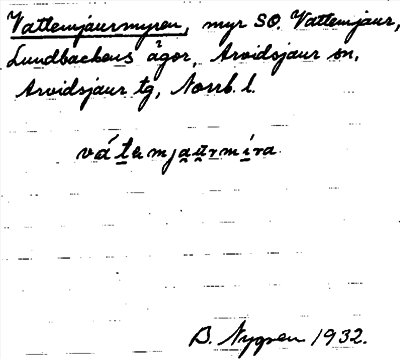 Vattemjaurmyren, myr SO. Vattemjaur,
Lundbackens ägor, Arvidsjaur sn,
Arvidsjaur tg, Norrb. l.
vátemjaurmíra
B. Nygren 1932.